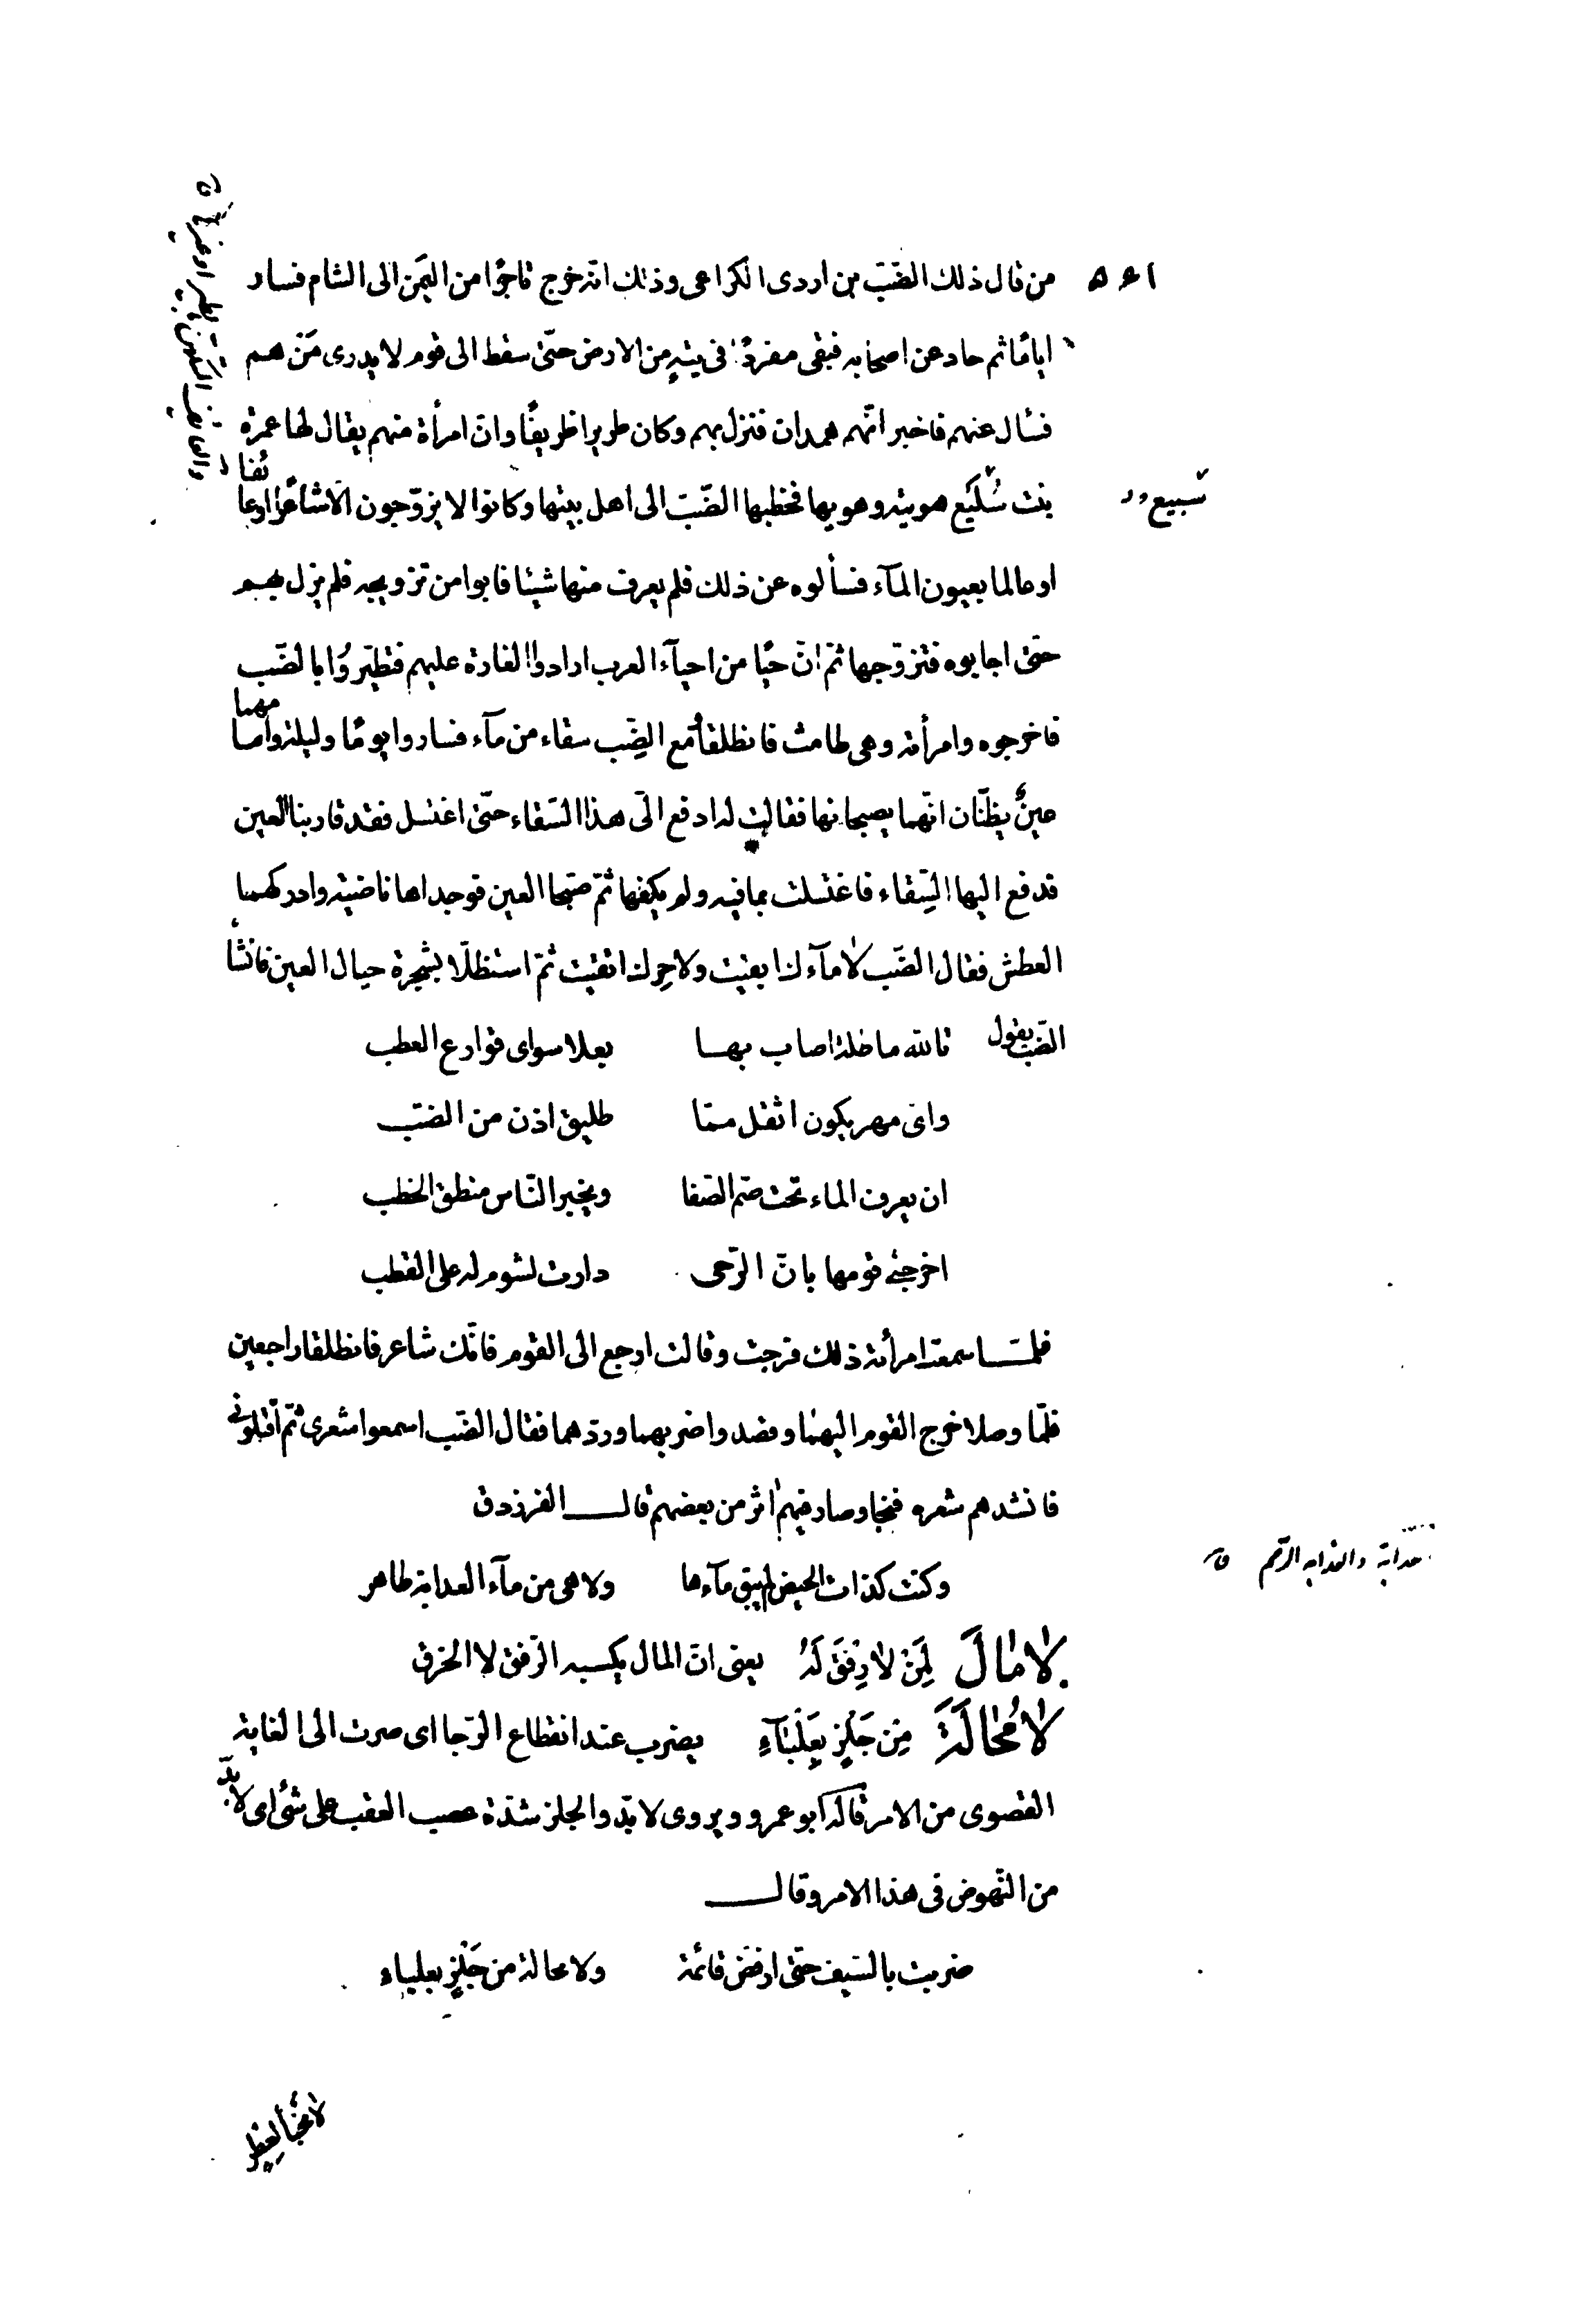 من قال ذلك الضّبّ بن اردى الكراعى وذلك انّه خرج تاجرًا من اليمَن الى الشام فسار
ايامًا ثم حاد عن اصحابه فبقى مفردًا فى تيهٍ من الارض حتّى سقط الى قوم لا يدرى مَن هم
فسأل عنهم فاخبر انّهم همدان فنزل بهم وكان طريرا ظريفًا وانّ امرأة منهم يقال لها عمرة
بنت سُكَيَع هويته وهويها فخطبها الضّبّ الى اهل بيتها وكانوا لا يزوّجون الّا شاعرًا او عا
سبيع
او عالما بعيون المآء فسألوه عن ذلك فلم يعرف منها شيئا فابوا من تزويجه فلم يزل بهم
حتى اجابوه فتزوّجها ثمّ انّ حيًّا من احيآء العرب ارادوا الغارة عليهم فتطيّروُا بالضّب
فاخرجوه وامرأته وهى طامث فانطلقا مع الضِّب سقاء من مآء فسارا يومًا وليلة وامامهما
عينٌ يظنّان انّهما يصبحانها فقالت له ادفع الىّ هذا السّقاء حتّى اغتسل فقد قاربنا العين
فدفع اليها السِّقاء فاغتسلت بما فيه ولم يكفها ثمّ صبّحا العين فوجداها ناضبة وادركهما
العطش فقال الضّب لا مآءك ابقيت ولا حِرك انقيت ثمّ استظلّا بشجرة حيال العين فانشأ
الضّب يقول
تالله ما طلة اصاب بها بعلا سواى قوارع العطب
واىّ مهر يكون اثقل ممّا طليق اذن من الضبّ
ان يعرف الماء تحت صمّ الصّفا ويخبر النّاس منطق الخطب
اخرجنى قومها بانّ الرّحى دارت لشوم له على القطب
فلمّا سمعت امرأته ذلك فرحت وقالت ارجع الى القوم فانّك شاعر فانطلقا راجعين
فلمّا وصلا خرج القوم اليهما وقصدوا ضربهما وردّهما فقال الضّب اسمعوا شعرى ثمّ اقتلونى
فانشدهم شعره فنجا وصار فيهم اثر من بعضهم قال الفرزدق
وكنت كذات الحيض لم يبق مآءها ولا هى من مآء العدابة طاهر
لا مٰالَ لِمَنْ لٰا رِفْقَ لَهُ يعنى انّ المال يكسبه الرّفق لا الخرق
لٰا مُحٰالَةَ مِن جَلْزٍ بِعِلْبٰآءٍ يضرب عند انقطاع الرّجا اى صرت الى الغاية
القصوى من الامر قاله ابو عمرو ويروى لا بدّ والجلز شدّة عصب العقب على شئ اى لا بدّ
من النّهوض فى هذا الامر وقال
ضربت بالسّيف حتّى ارفضّ قائمه ولا محالة من جَلْزٍ بعلباء
لا مخبأ لعطر